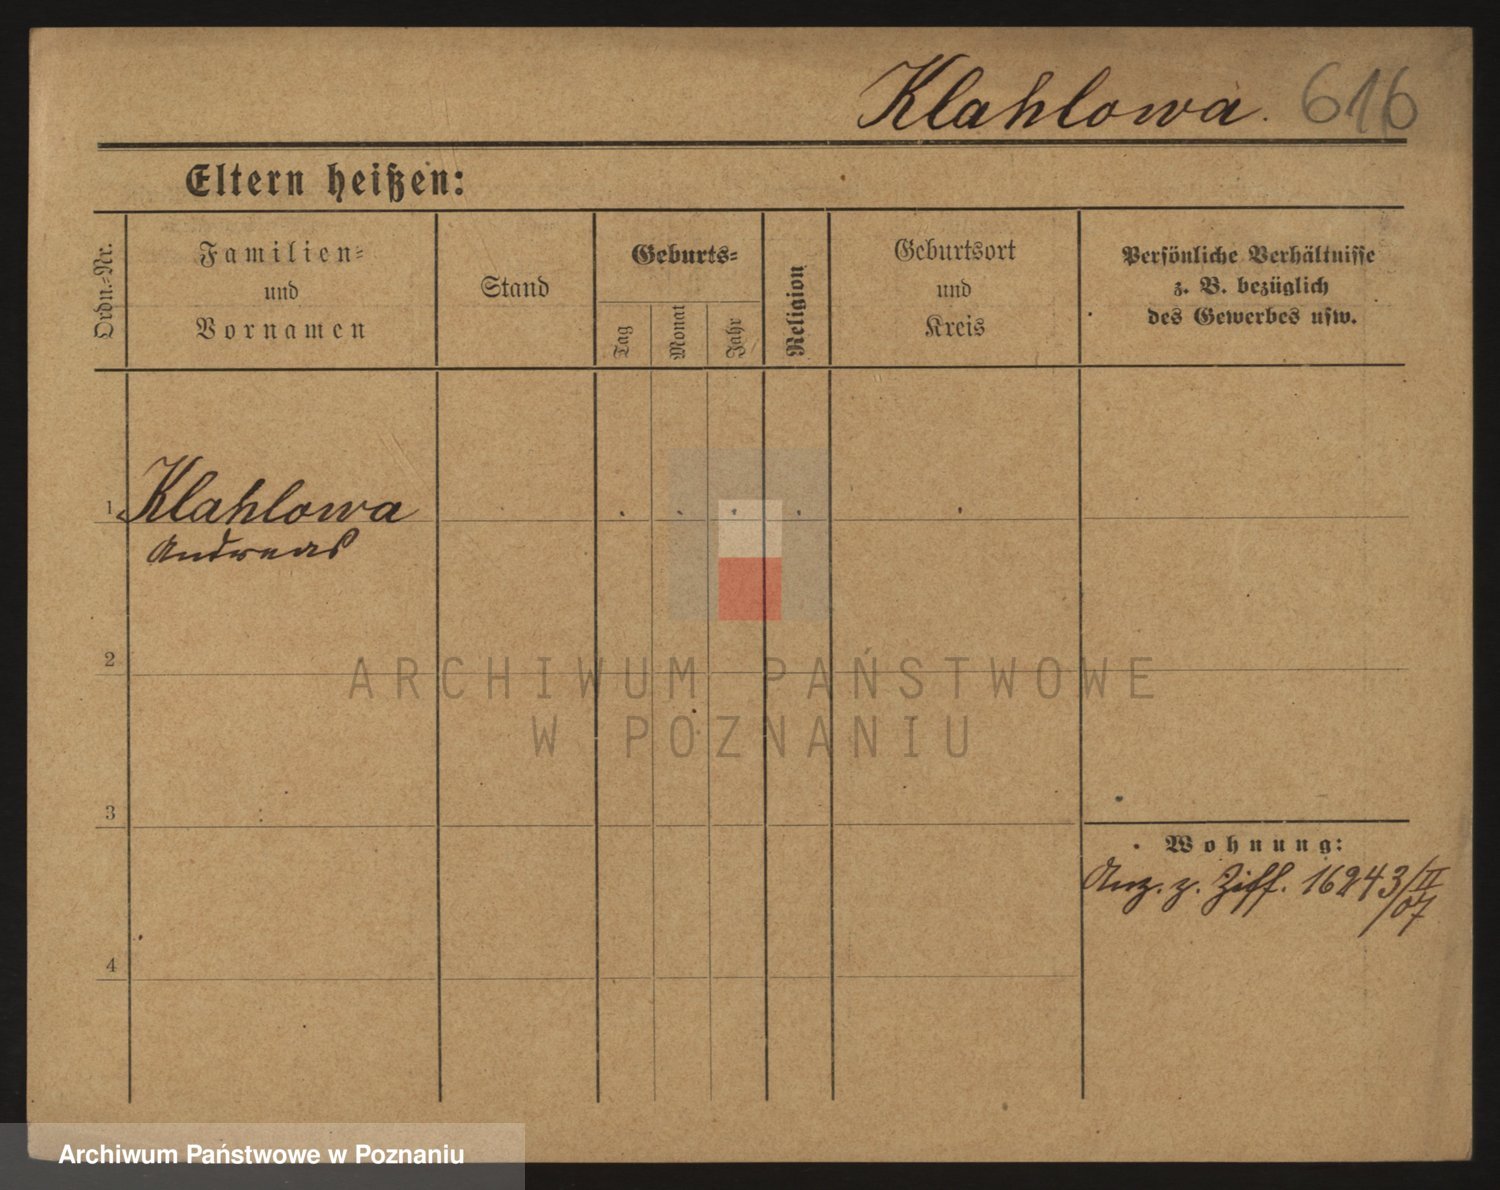 Klahlowa. 616
Eltern heißen:
Ordn.=Nr.
Familien=
und
Vornamen
Stand
Geburts=
Tag
Monat
Jahr
Religion
Geburtsort
und
Kreis
Persönliche Verhältnisse
z. B. bezüglich
des Gewerbes usw.
1 Klahlowa
Andreas
2
ARCHIWUM PAŃSTWOWE
W POZNANIU
3
Wohnung:
Anz. z. Ziff. 16243/II
/07
4
Archiwum Państwowe w Poznaniu